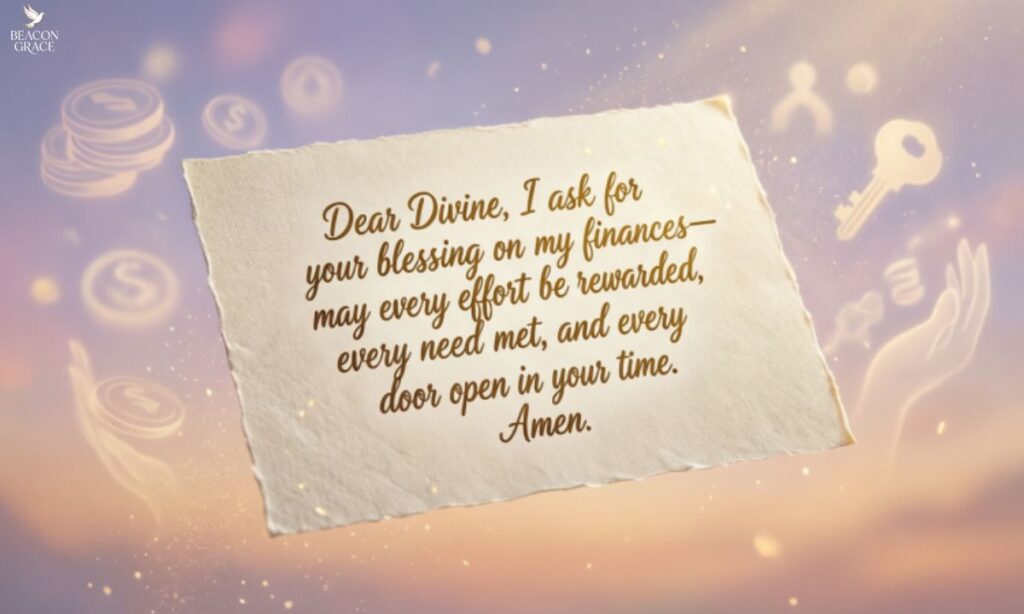 BEACON
GRACE
Dear Divine, I ask for
your blessing on my finances—
may every effort be rewarded,
every need met, and every
door open in your time.
Amen.